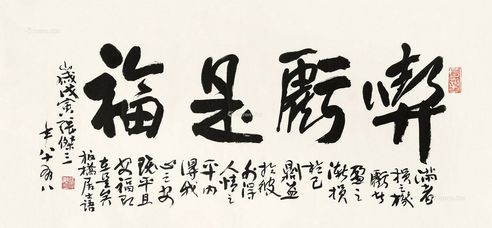 喫虧是福
滿者
損之機
虧者
盈之
漸損
於己
則益
於彼
外得
人情之
平内
得我
心之安
既平且
安福即
在是矣
板橋居士語
歲戊寅張傑三
年八十又八